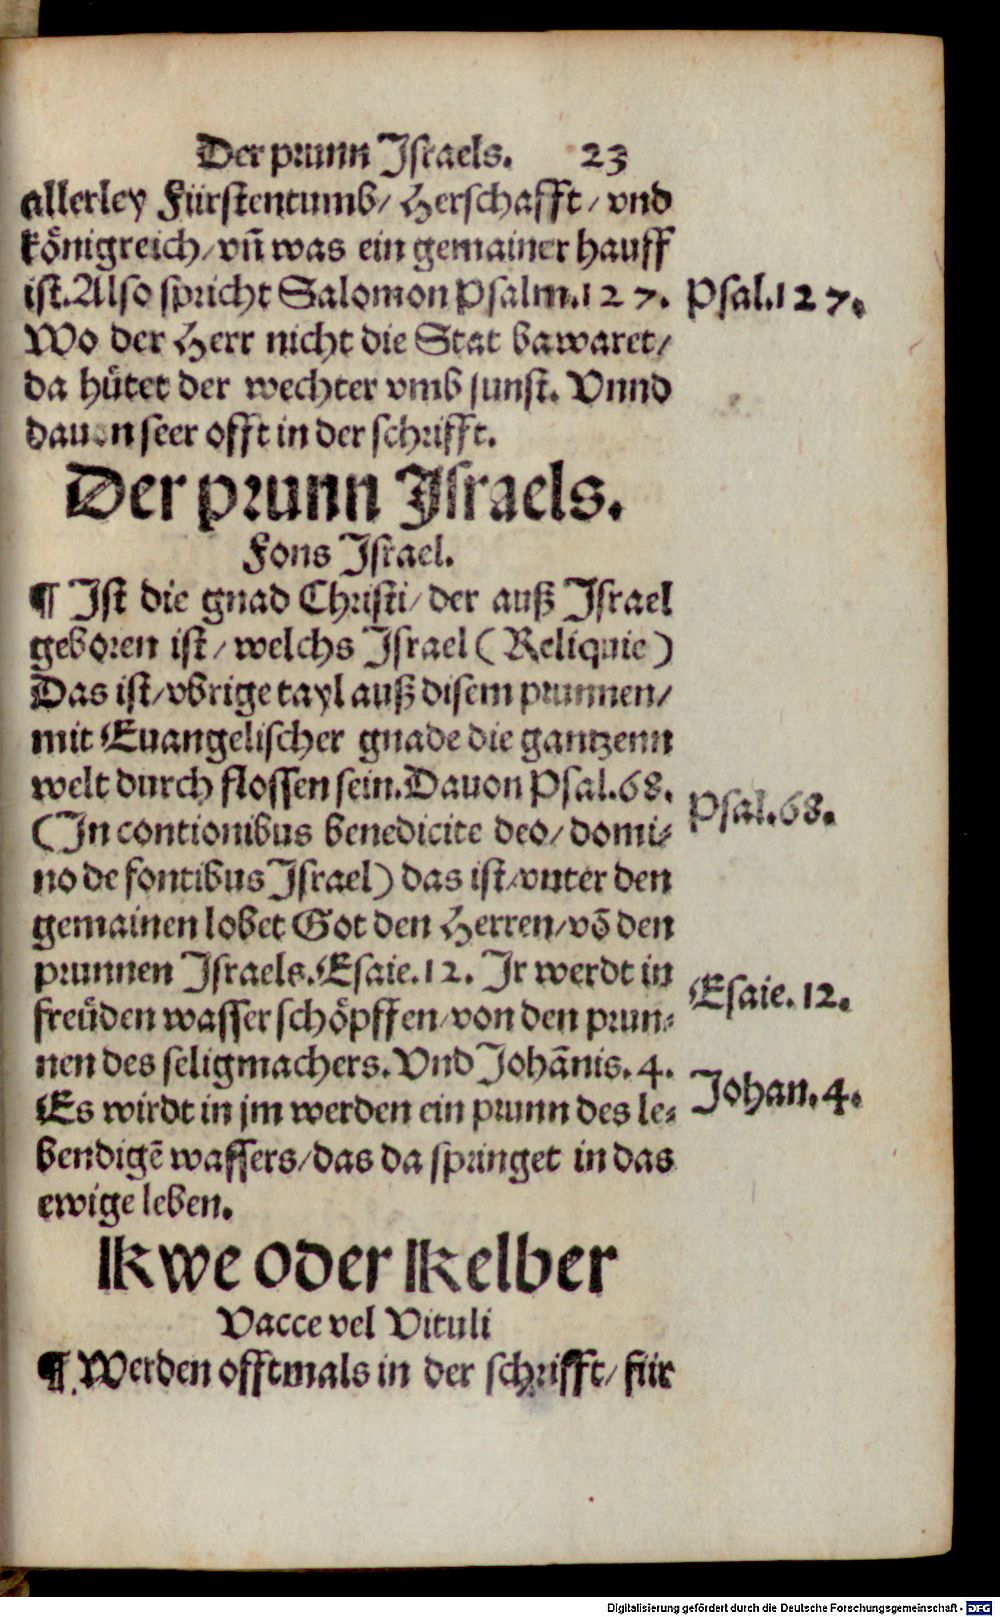 Der prunn Israels. 23
allerley Fürstentumb/ Herschafft/ vnd
königreich/ vñ was ein gemainer hauff
ist. Also spricht Salomon Psalm. 127. Psal. 127.
Wo der Herr nicht die Stat bawaret/
da hütet der wechter vmb sunst. Vnnd
dauon seer offt in der schrifft.
Der prunn Israels.
Fons Israel.
¶ Ist die gnad Christi/ der auß Israel
geboren ist/ welchs Israel (Reliquie)
Das ist/ vbrige tayl auß disem prunnen/
mit Euangelischer gnade die gantzenn
welt durch flossen sein. Dauon Psal. 68. Psal. 68.
(In contionibus benedicite deo/ domi⸗
no de fontibus Israel) das ist/ vnter den
gemainen lobet Got den Herren/ võ den
prunnen Israels. Esaie. 12. Ir werdt in Esaie. 12.
freüden wasser schöpffen/ von den prun⸗
nen des seligmachers. Vnd Johãnis. 4. Johan. 4.
Es wirdt in jm werden ein prunn des le⸗
bendigẽ wassers/ das da springet in das
ewige leben.
Kwe oder Kelber
Vacce vel Vituli
¶ Werden offtmals in der schrifft/ für
Digitalisierung gefördert durch die Deutsche Forschungsgemeinschaft - DFG